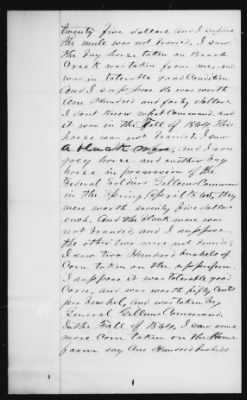 twenty five dollars and I suppose
the mule was not branded, I saw
the bay horse taken on Beach
Creek was taken from me, and
was in tolerable good condition
and I suppose he was worth
One Hundred and forty dollars
I dont know what Command and
it was in the Fall of 1864 This
horse was not branded I saw
a black mare, and I saw
grey horse and another bay
horse in possession of the
Federal Soldiers Gillems Command
in the Spring April 1865, they
were worth seventy five dollars
each. and the black mare was
not branded and I suppose
the other two were not branded
I saw two Hundred bushels of
Corn taken on the upper farm
I suppose it was tolerable good
Corn, and was worth fifty cents
per bushel, and was taken by
General Gillems Command.
In the Fall of 1864, I saw some
more Corn taken on the Home
farm say One Hundred bushels